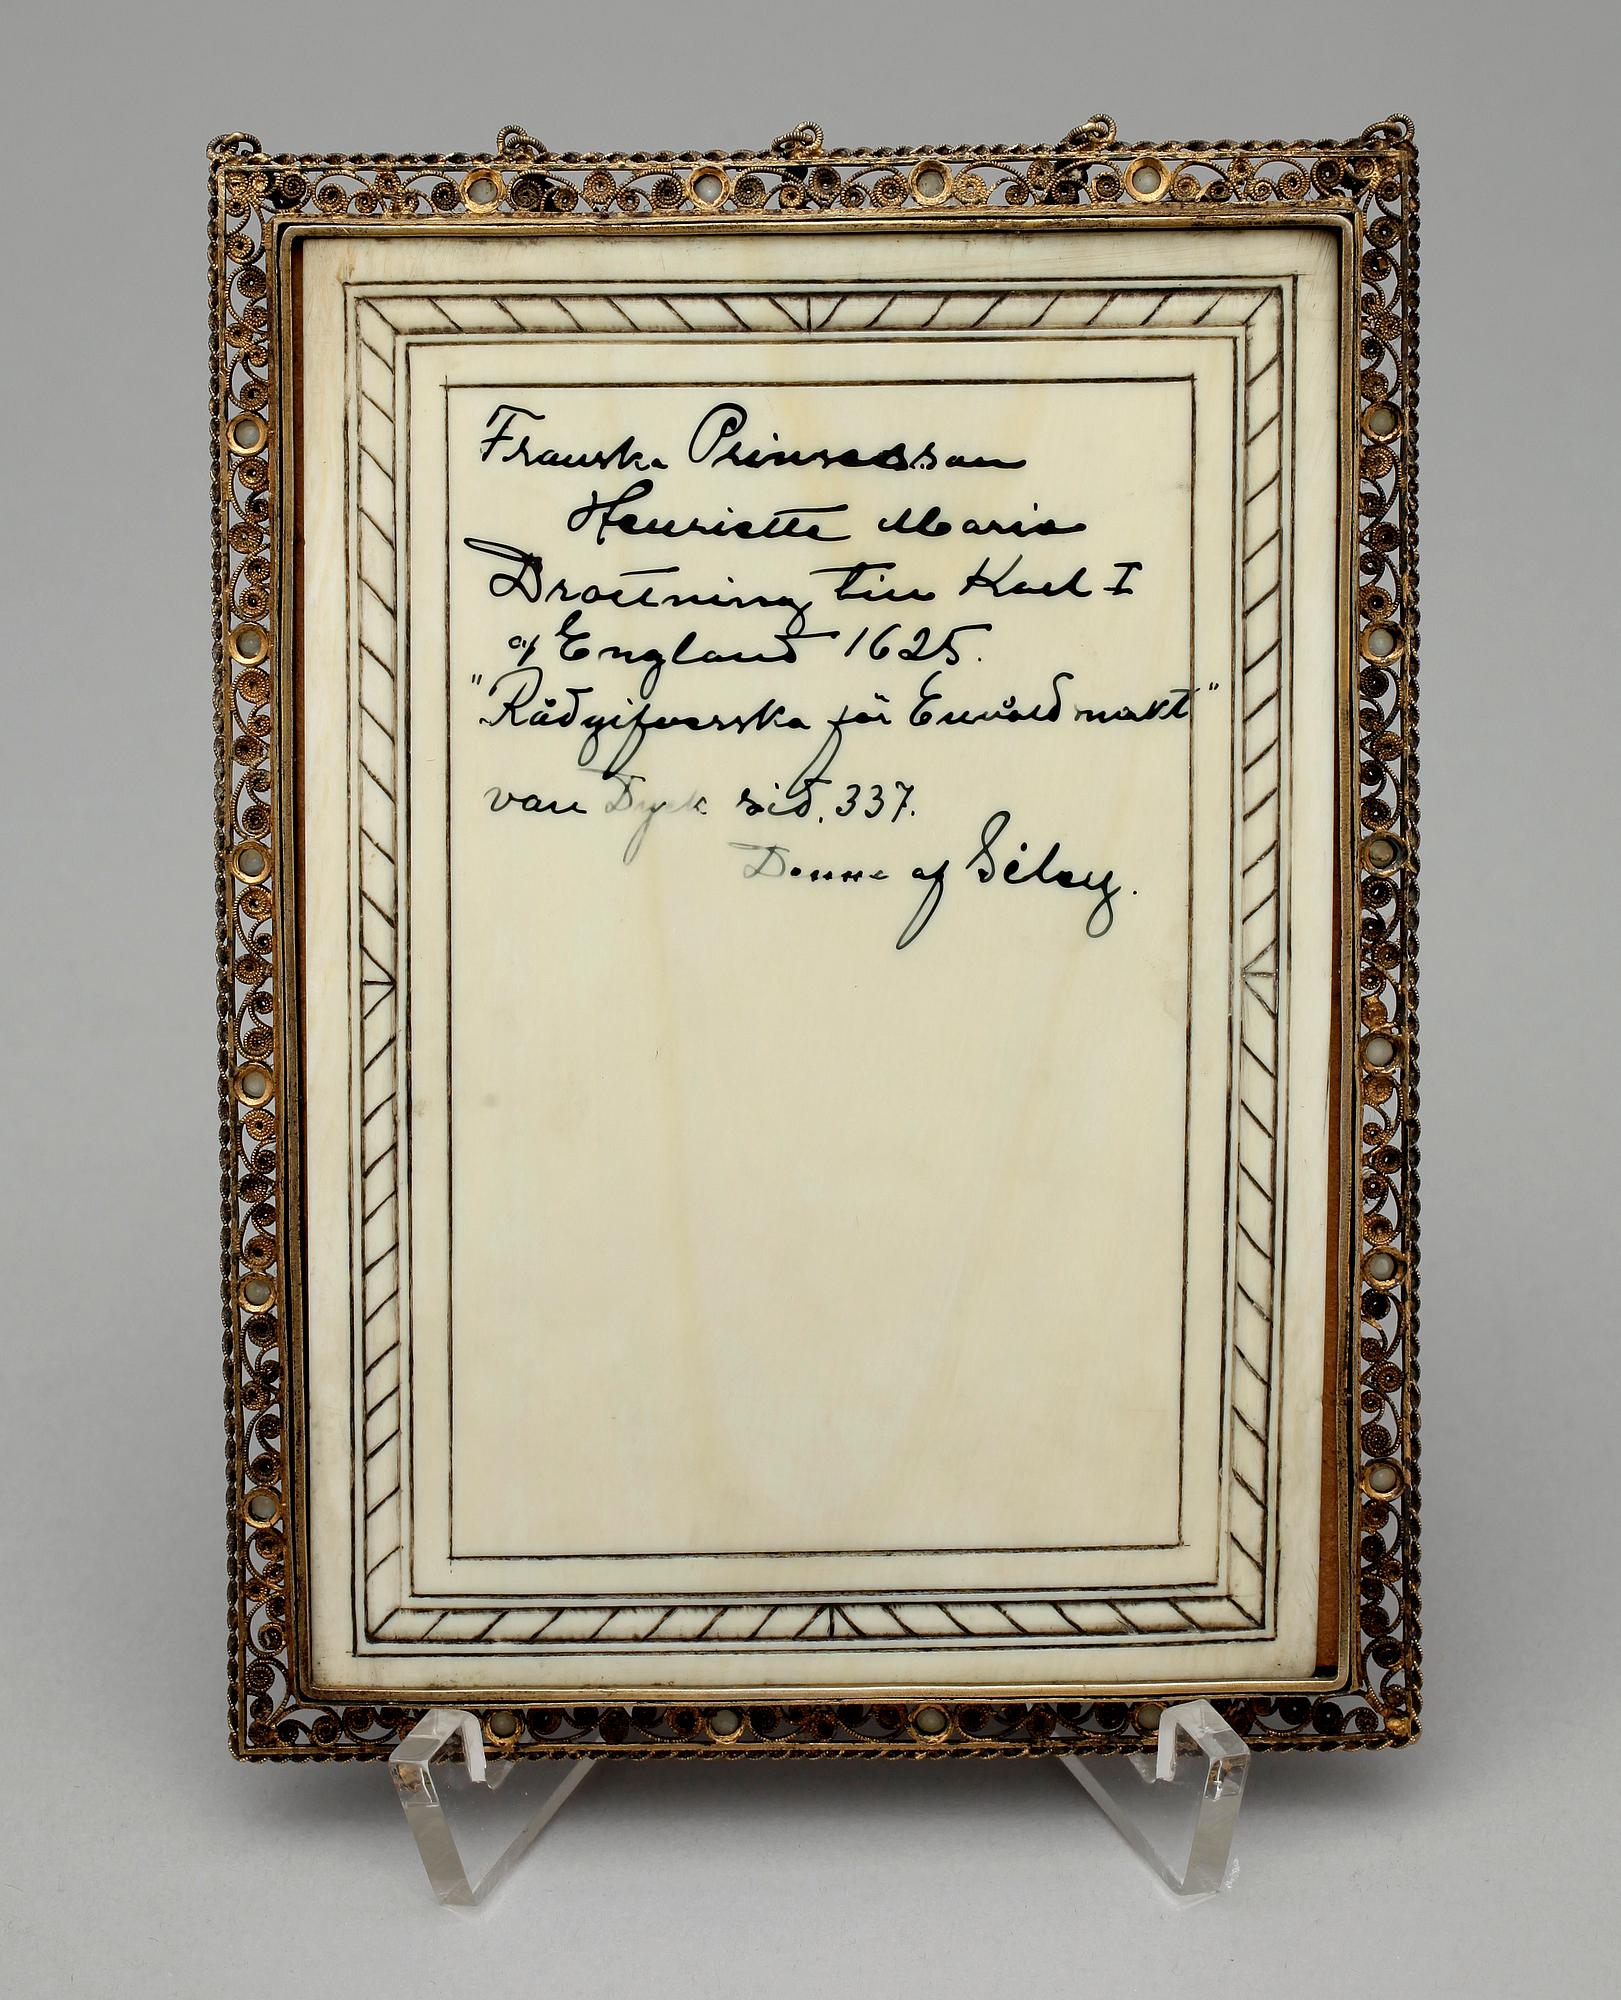 Franska Prinsessan
Henriette Maria
Drottning till Karl I
af England 1625.
"Rådgifverska för Enväldmakt"
van Dyck sid. 337.
Denna af